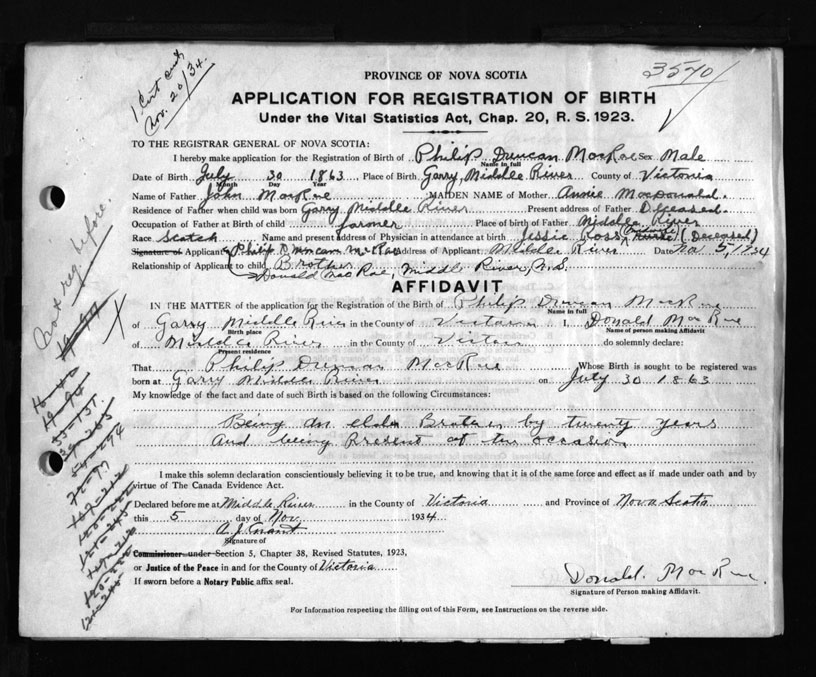 1 Cert sent
Nov. 20/34.
3570
PROVINCE OF NOVA SCOTIA
APPLICATION FOR REGISTRATION OF BIRTH
Under the Vital Statistics Act, Chap. 20, R. S. 1923.
TO THE REGISTRAR GENERAL OF NOVA SCOTIA:
I hereby make application for the Registration of Birth of Philip Duncan MacRae Sex Male
Name in full
Date of Birth July 30 1863 Place of Birth Garry, Middle River County of Victoria
Month Day Year
Name of Father John MacRae MAIDEN NAME of Mother Annie MacDonald.
Residence of Father when child was born Garry Middle River Present address of Father Deceased.
Occupation of Father at Birth of child farmer Place of birth of Father Middle River
Race Scotch Name and present address of Physician in attendance at birth Jessie Ross, Nurse (Deceased)
Signature of Applicant Philip Duncan McRae Address of Applicant Middle River Date Nov 5, 1934
Relationship of Applicant to child Brother
Donald MacRae, Middle River, N.S.
AFFIDAVIT
IN THE MATTER of the application for the Registration of the Birth of Philip Duncan MacRae
Name in full
of Garry Middle River in the County of Victoria I, Donald MacRae
Birth place Name of person making Affidavit
of Middle River in the County of Victoria do solemnly declare:
Present residence
That Philip Duncan MacRae Whose Birth is sought to be registered was
born at Garry Middle River on July 30 1863
My knowledge of the fact and date of such Birth is based on the following Circumstances:
Being an elder Brother by twenty years
And being Present at the occasion
I make this solemn declaration conscientiously believing it to be true, and knowing that it is of the same force and effect as if made under oath and by
virtue of The Canada Evidence Act.
Declared before me at Middle River in the County of Victoria and Province of Nova Scotia
this 5 day of Nov 1934
A. J. Grant
Signature of
Commissioner under Section 5, Chapter 38, Revised Statutes, 1923,
or Justice of the Peace in and for the County of Victoria
If sworn before a Notary Public affix seal.
Donald. MacRae.
Signature of Person making Affidavit.
For Information respecting the filling out of this Form, see Instructions on the reverse side.
Not reg before.